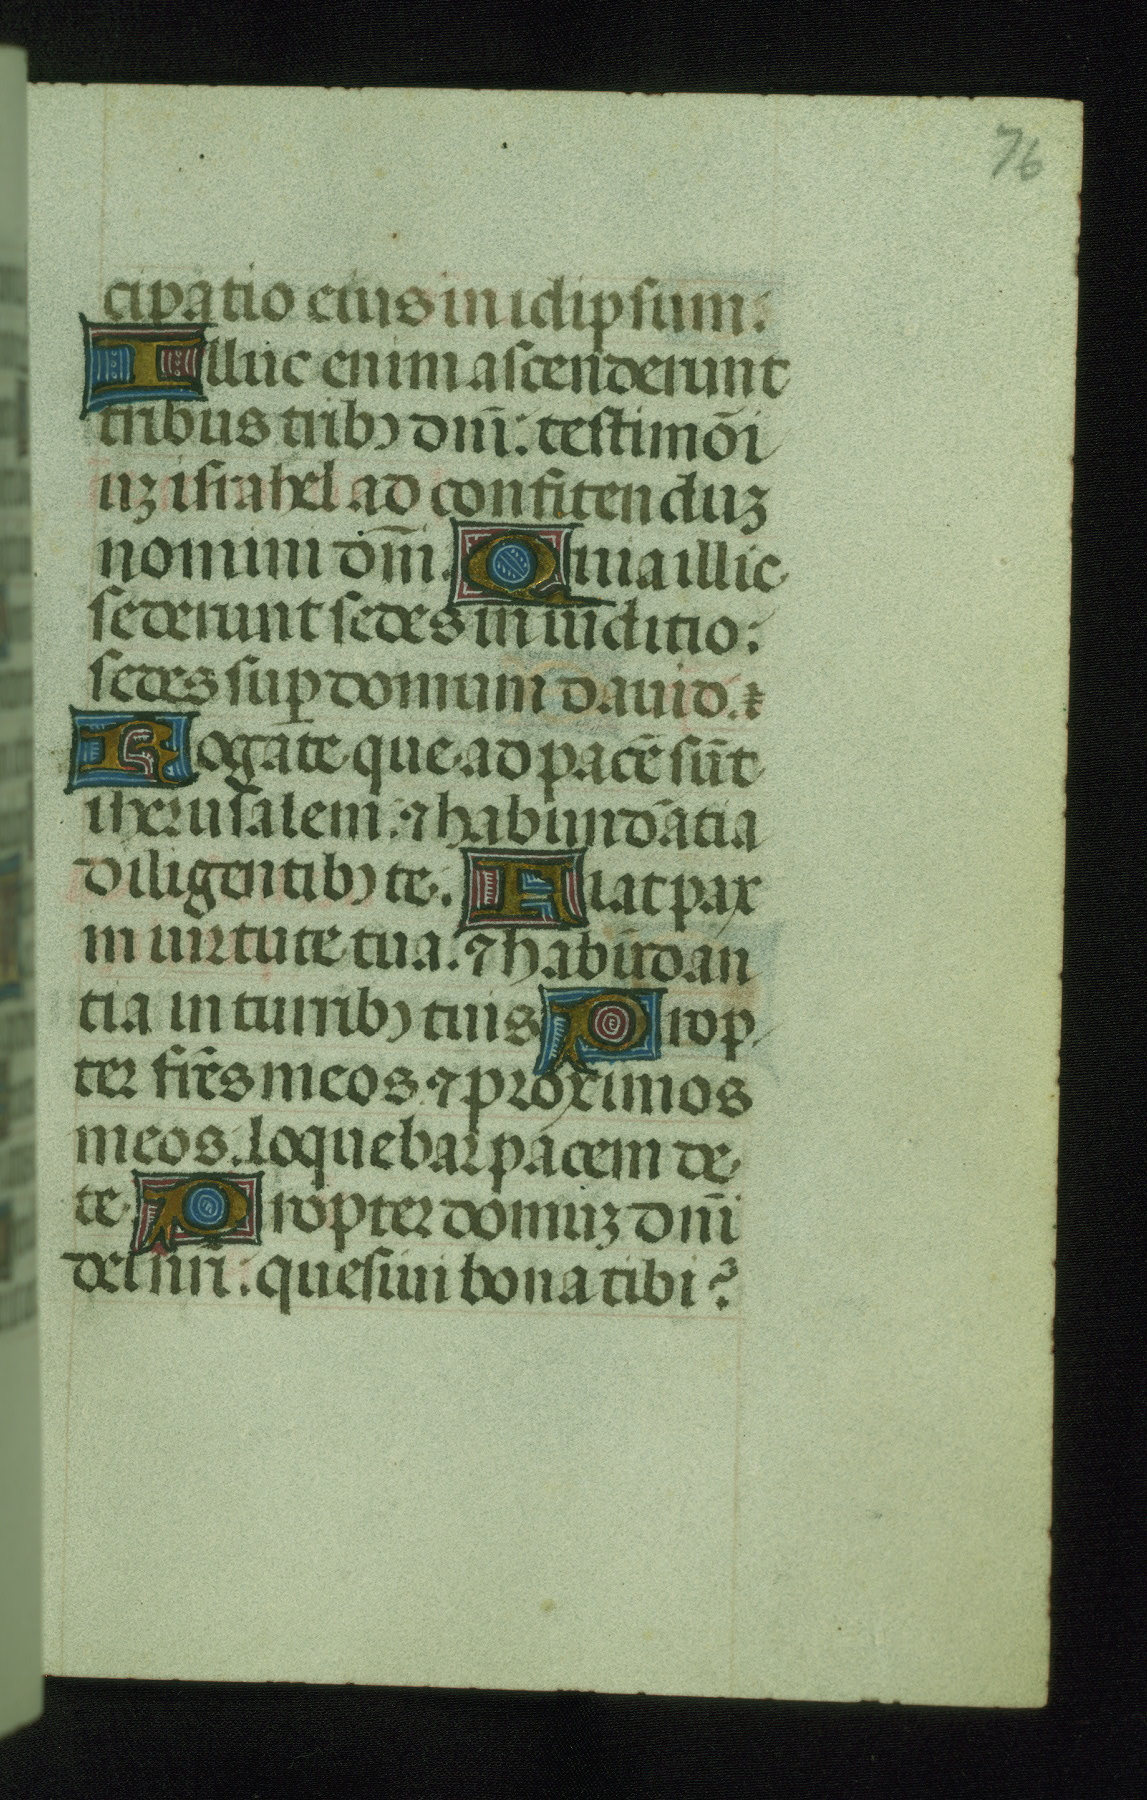 76
cipatio eius in idipsum:
Illuc enim ascenderunt
tribus tribꝯ dnī: testimōi
uꝫ israhel ad confitenduꝫ
nomini dnī. Quia illic
sederunt sedes in iuditio:
sedes sup domum dauid. ⁊
Rogate que ad pacē sūt
iherusalem: ⁊ habundātia
diligentibꝯ te. Fiat pax
in uirtute tua: ⁊ habūdan
tia in turribꝯ tuis Prop
ter frēs meos ⁊ proximos
meos. loquebar pacem de
te Propter domuꝫ dnī
dei nrī: quesiui bona tibi?